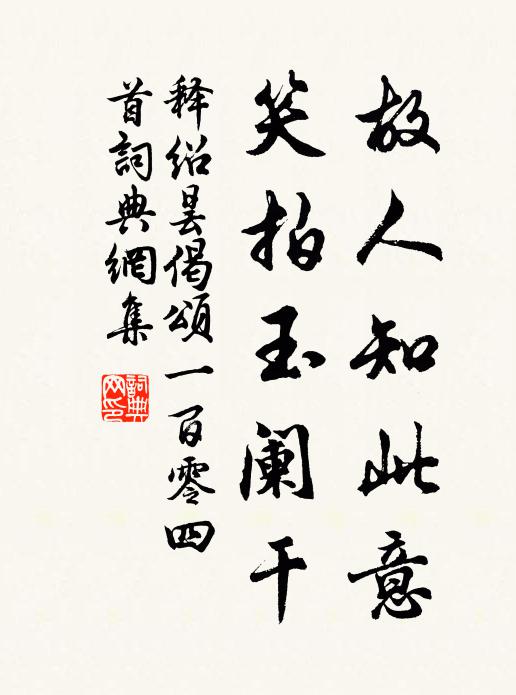 故人知此意
笑拍玉阑干
释绍昙偈頌一百零四
首詞典網集
詞典
网印